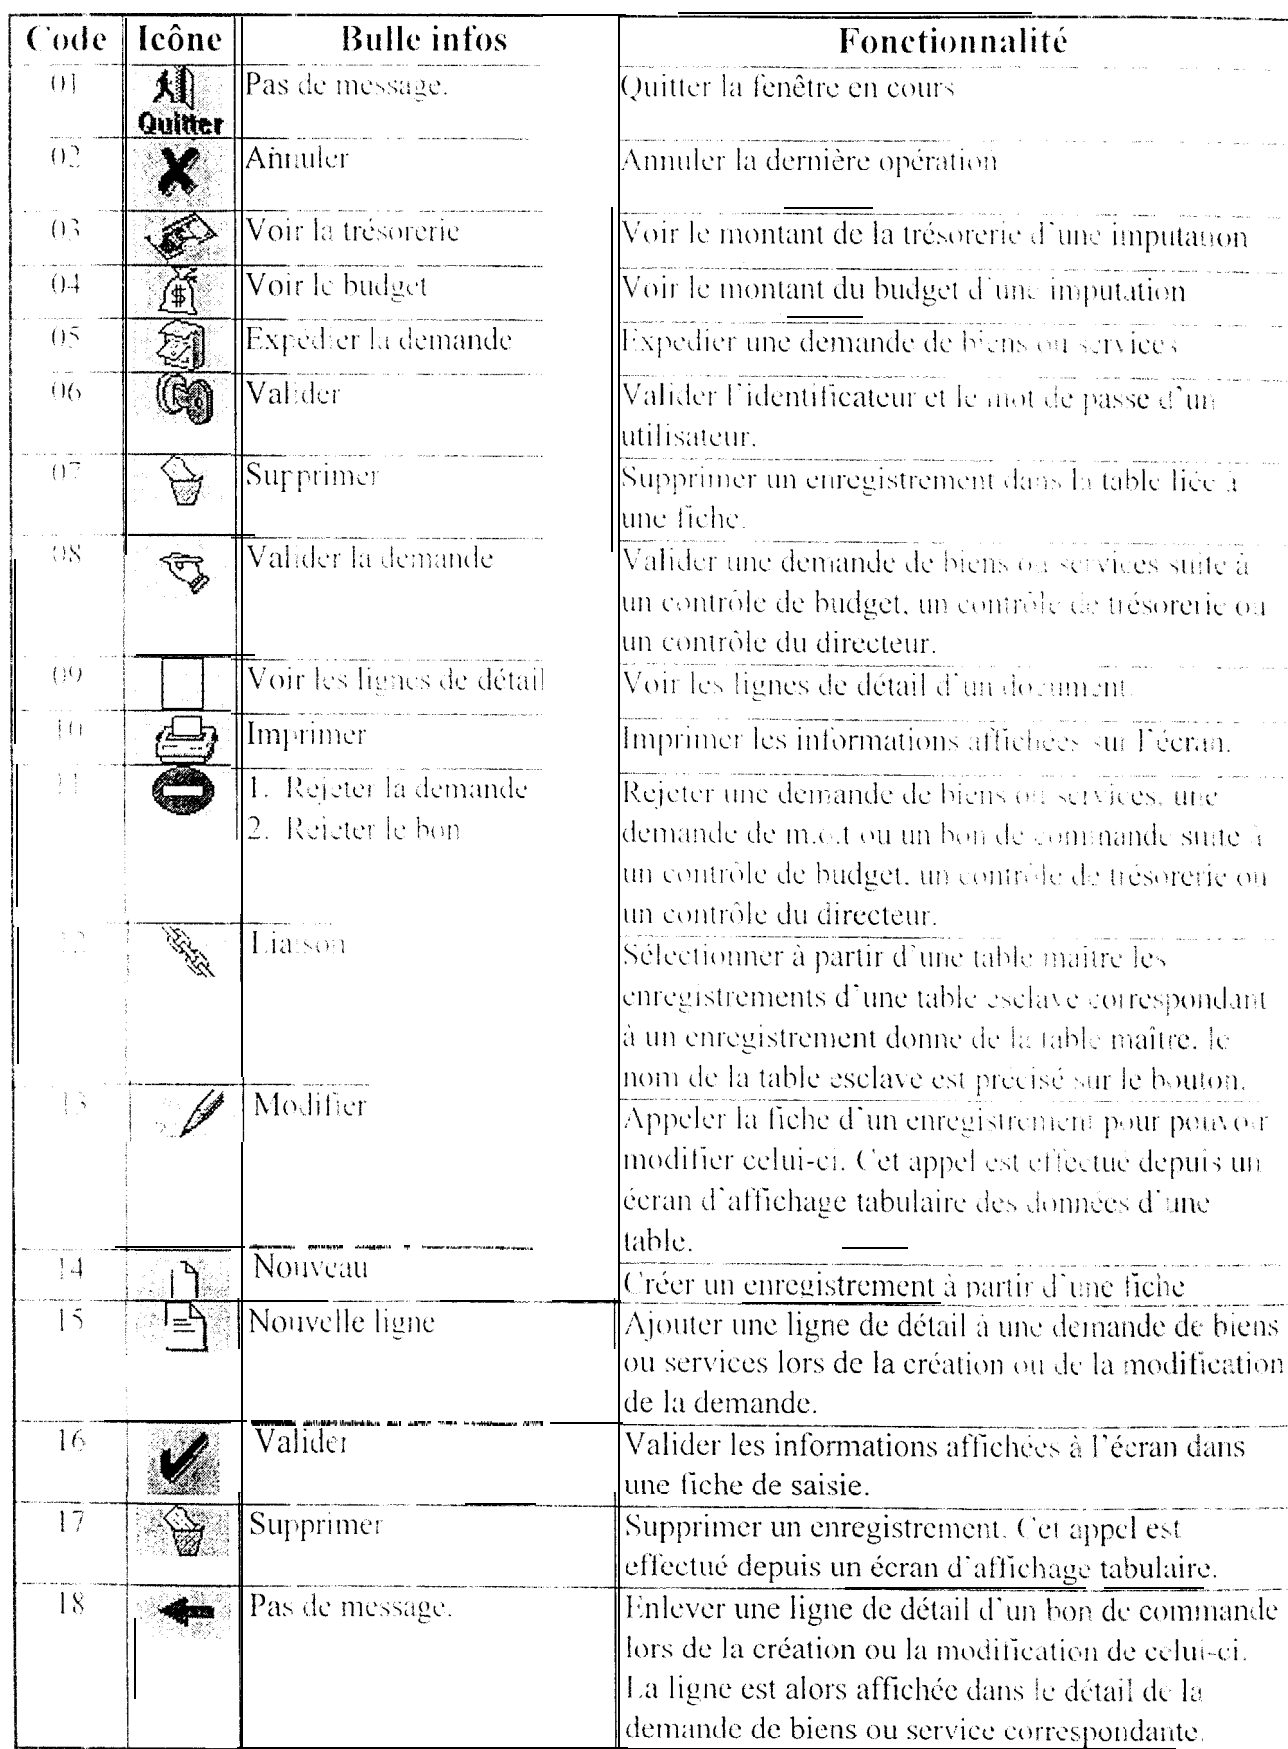 Code Icône Bulle infos Fonctionnalité
01 Quitter Pas de message. Quitter la fenêtre en cours
02 Annuler Annuler la dernière opération
03 Voir la trésorerie Voir le montant de la trésorerie d'une imputation
04 $ Voir le budget Voir le montant du budget d'une imputation
05 Expédier la demande Expedier une demande de biens ou services
06 Valider Valider l'identificateur et le mot de passe d'un
utilisateur.
07 Supprimer Supprimer un enregistrement dans la table liée à
une fiche.
08 Valider la demande Valider une demande de biens ou services suite à
un contrôle de budget, un contrôle de trésorerie ou
un contrôle du directeur.
09 Voir les lignes de détail Voir les lignes de détail d'un document.
10 Imprimer Imprimer les informations affichées sur l'écran.
11 1. Rejeter la demande Rejeter une demande de biens ou services, une
2. Rejeter le bon demande de m.o.t ou un bon de commande suite à
un contrôle de budget, un contrôle de trésorerie ou
un contrôle du directeur.
12 Liaison Sélectionner à partir d'une table maitre les
enregistrements d'une table esclave correspondant
à un enregistrement donne de la table maître. le
nom de la table esclave est précisé sur le bouton.
13 Modifier Appeler la fiche d'un enregistrement pour pouvoir
modifier celui-ci. Cet appel est effectué depuis un
écran d'affichage tabulaire des données d'une
table.
14 Nouveau Créer un enregistrement à partir d'une fiche
15 Nouvelle ligne Ajouter une ligne de détail à une demande de biens
ou services lors de la création ou de la modification
de la demande.
16 Valider Valider les informations affichées à l'écran dans
une fiche de saisie.
17 Supprimer Supprimer un enregistrement. Cet appel est
effectué depuis un écran d'affichage tabulaire.
18 Pas de message. Enlever une ligne de détail d'un bon de commande
lors de la création ou la modification de celui-ci.
La ligne est alors affichée dans le détail de la
demande de biens ou service correspondante.